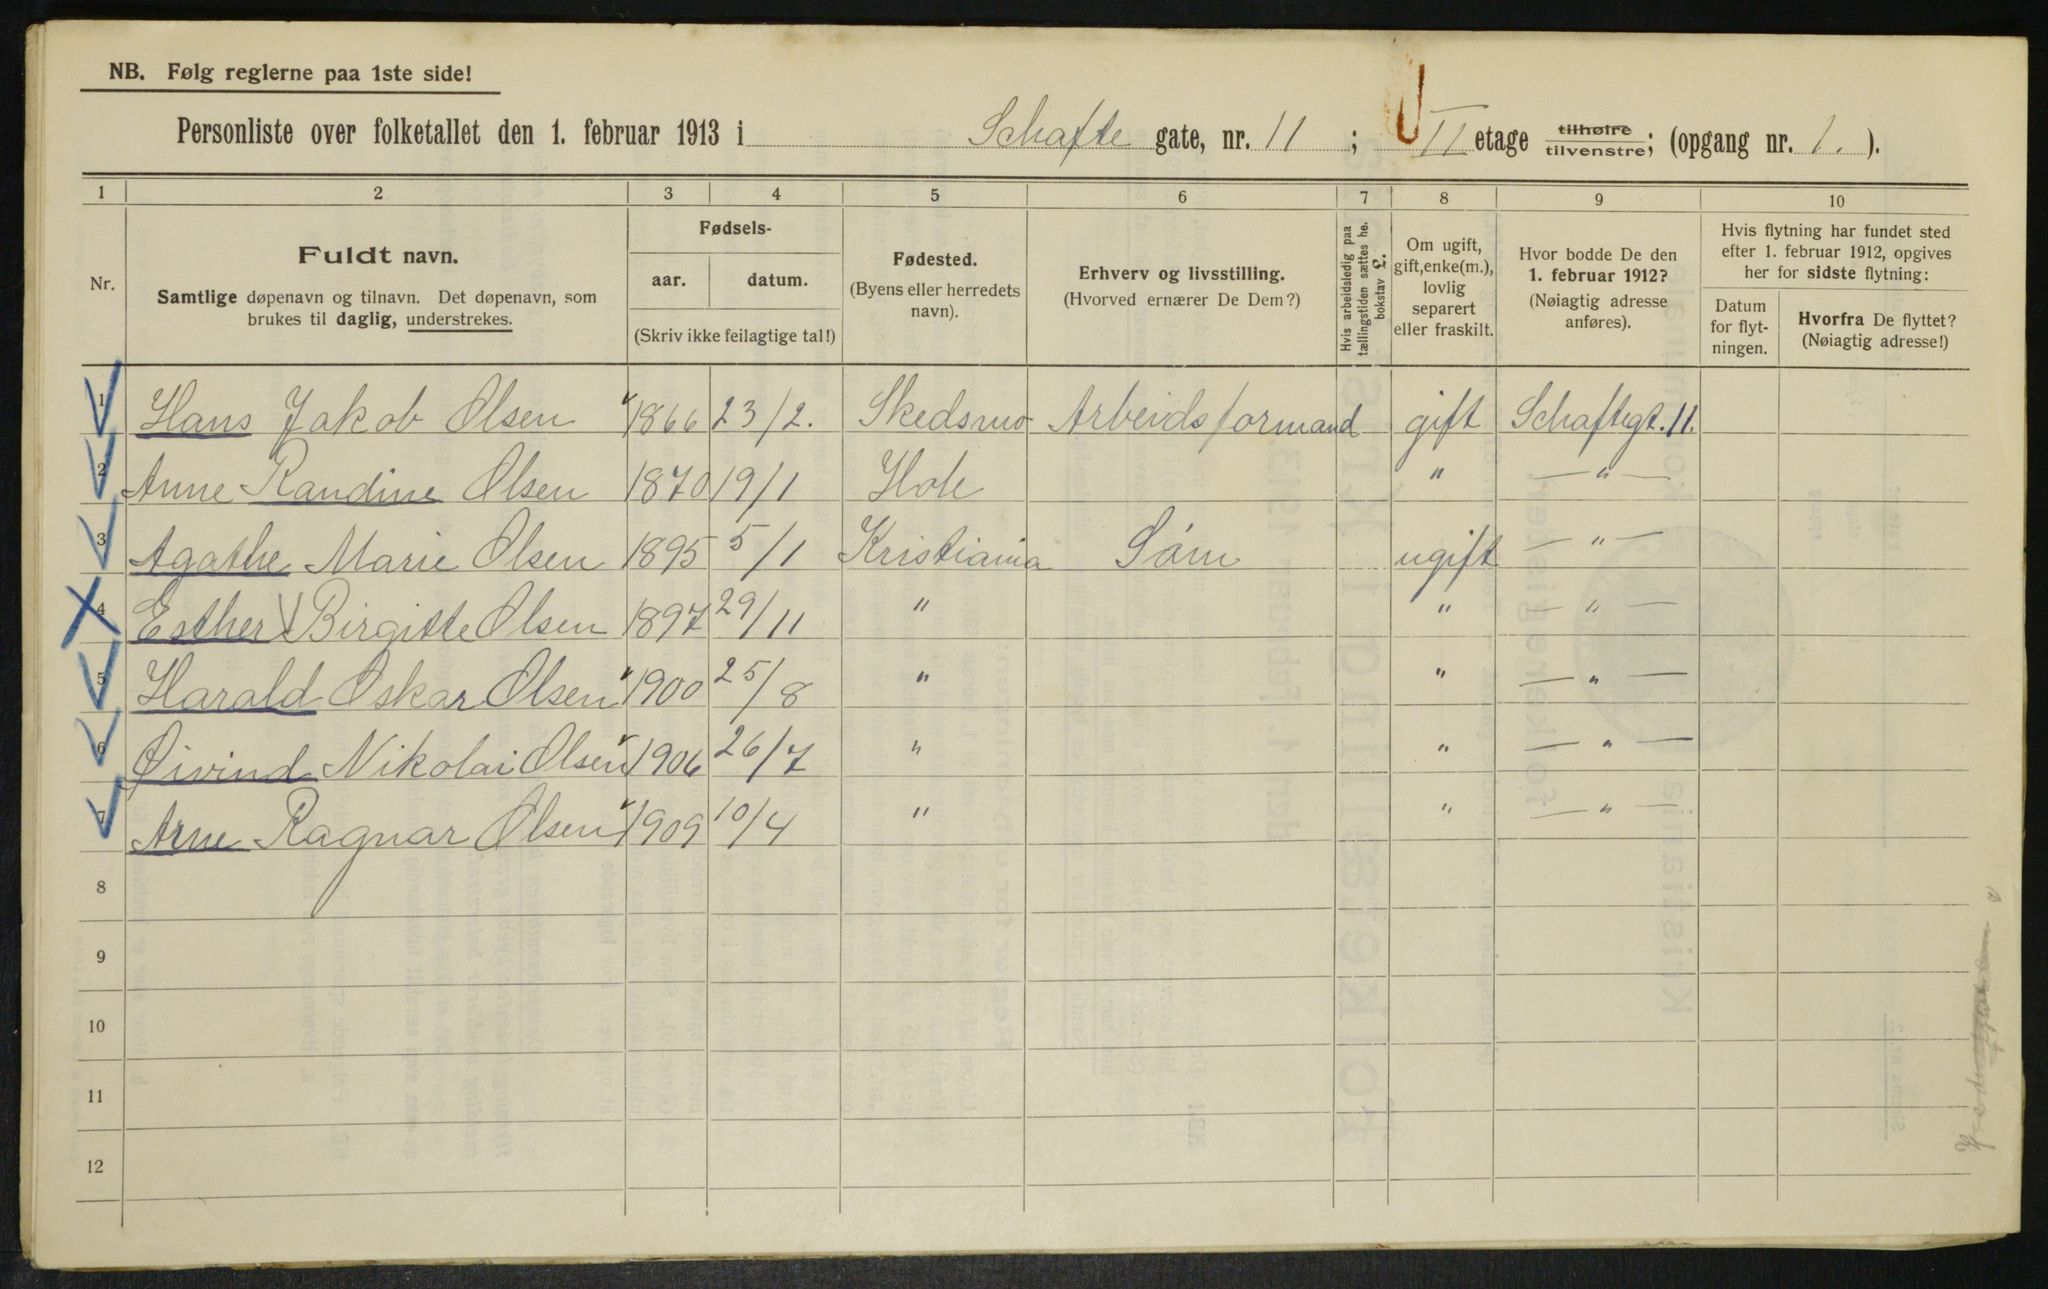 NB. Følg reglerne paa 1ste side!
Personliste over folketallet den 1. februar 1913 i Schafte gate, nr. 11 ; II etage tilhøire tilvenstre; (opgang nr. 1. ).
1 2 3 4 5 6 7 8 9 10
Nr.
Fuldt navn.
Samtlige døpenavn og tilnavn. Det døpenavn, som
brukes til daglig, understrekes.
Fødsels-
aar. datum.
(Skriv ikke feilagtige tal!)
Fødested.
(Byens eller herredets
navn).
Erhverv og livsstilling.
(Hvorved ernærer De Dem?)
Hvis arbeidsledig paa
tællingstiden sættes he.
bokstav L.
Om ugift,
gift, enke(m.),
lovlig
separert
eller fraskilt.
Hvor bodde De den
1. februar 1912?
(Nøiagtig adresse
anføres).
Hvis flytning har fundet sted
efter 1. februar 1912, opgives
her for sidste flytning:
Datum
for flyt-
ningen.
Hvorfra De flyttet?
(Nøiagtig adresse!)
1 Hans Jakob Olsen 1866 23/2. Skedsmo Arbeidsformand gift Schaftegt. 11.
2 Anne Randine Olsen 1870 19/1 Hole " — " —
3 Agathe Marie Olsen 1895 5/1 Kristiania Søm ugift — " —
4 Esther Birgitte Olsen 1897 29/11 " " — " —
5 Harald Oskar Olsen 1900 25/8 " " — " —
6 Øivind Nikolai Olsen 1906 26/7 " " — " —
7 Arne Ragnar Olsen 1909 10/4 " " — " —
8
9
10
11
12